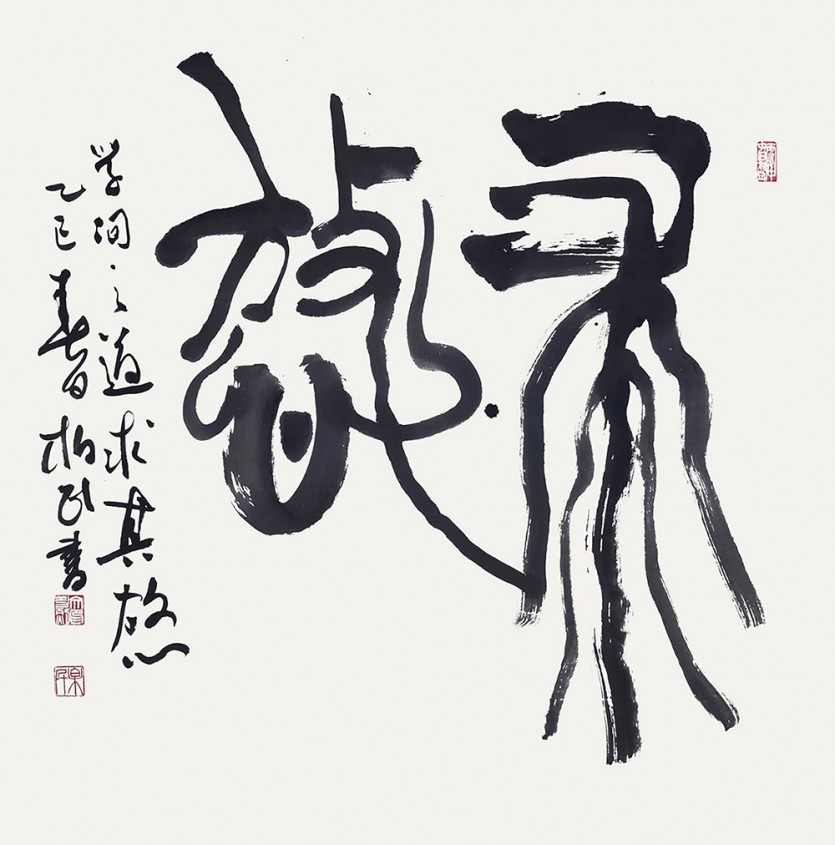 求
放心
学问之道求其放心
乙巳春柏 书